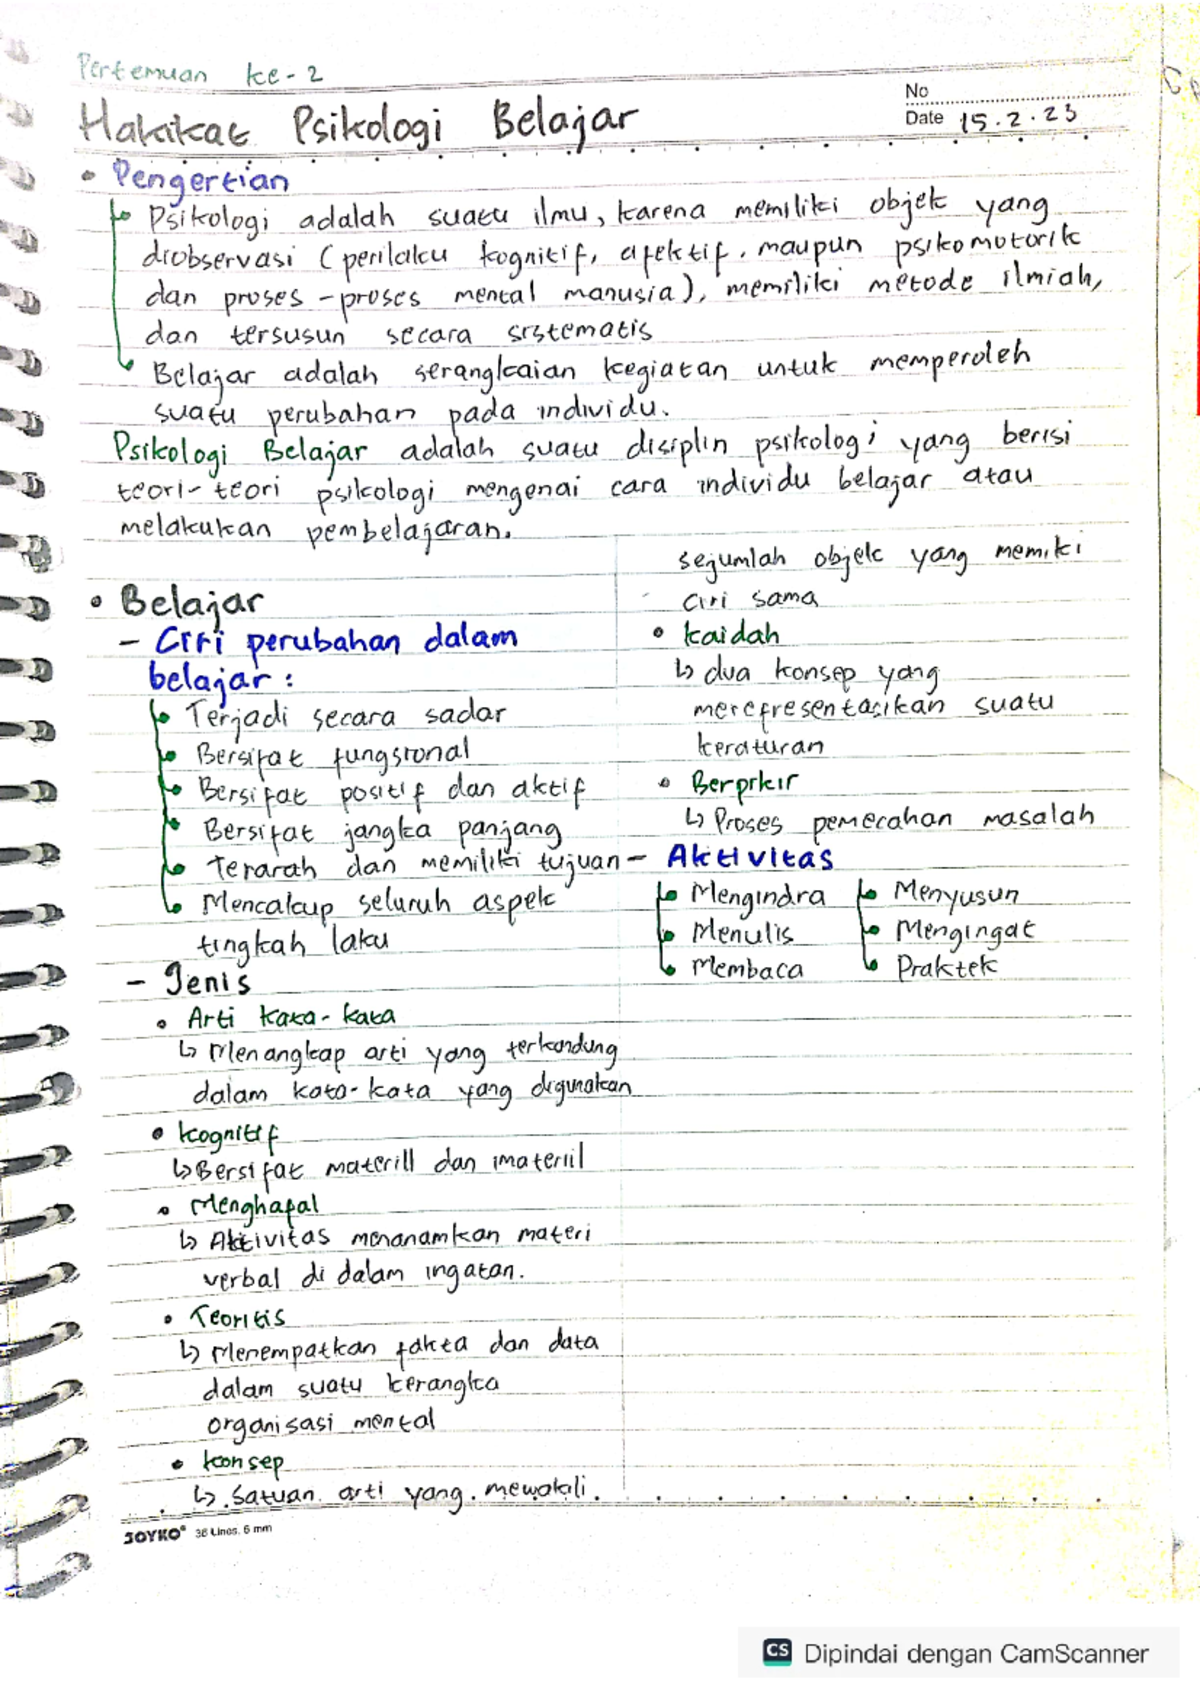 Pertemuan ke-2
Hakikat Psikologi Belajar
No
Date 15.2.23
• Pengertian
Psikologi adalah suatu ilmu, karena memiliki objek yang
diobservasi (perilaku kognitif, afektif, maupun psikomotorik
dan proses-proses mental manusia), memiliki metode ilmiah,
dan tersusun secara sistematis
Belajar adalah serangkaian kegiatan untuk memperoleh
suatu perubahan pada individu.
Psikologi Belajar adalah suatu disiplin psikologi yang berisi
teori-teori psikologi mengenai cara individu belajar atau
melakukan pembelajaran.
• Belajar
- Ciri perubahan dalam
belajar :
Terjadi secara sadar
Bersifat fungsional
Bersifat positif dan aktif
Bersifat jangka panjang
Terarah dan memiliki tujuan
Mencakup seluruh aspek
tingkah laku
- Jenis
• Arti kata-kata
↳ Menangkap arti yang terkandung
dalam kata-kata yang digunakan
• Kognitif
↳ Bersifat materill dan imateriil
• Menghafal
↳ Aktivitas menanamkan materi
verbal di dalam ingatan.
• Teoritis
↳ Menempatkan fakta dan data
dalam suatu kerangka
organisasi mental
• Konsep
↳ Satuan arti yang mewakili
sejumlah objek yang memiki
ciri sama
• Kaidah
↳ dua konsep yang
merefresentasikan suatu
keraturan
• Berpikir
↳ Proses pemecahan masalah
- Aktivitas
Mengindra
Menulis
Membaca
Menyusun
Mengingat
Praktek
JOYKO 36 Lines, 6 mm
CS Dipindai dengan CamScanner